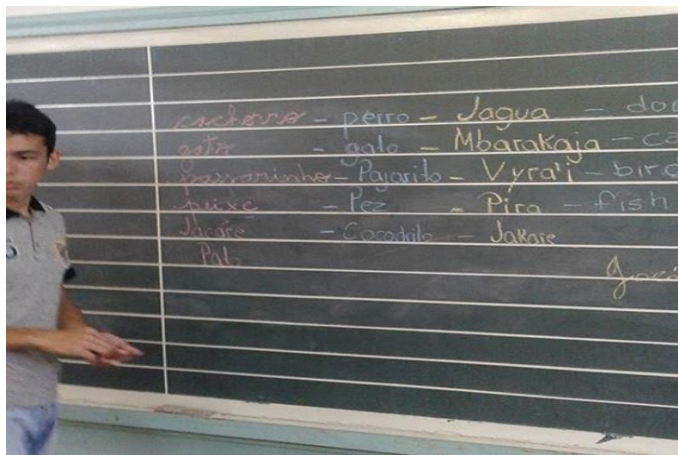 cachorro - perro - Jagua - dog
gato - gato - Mbarakaja - ca
passarinho - Pajarito - Vyra'i - bird
peixe - Pez - Pira - fish
Jacaré - Cocodrilo - Jakare
Pato